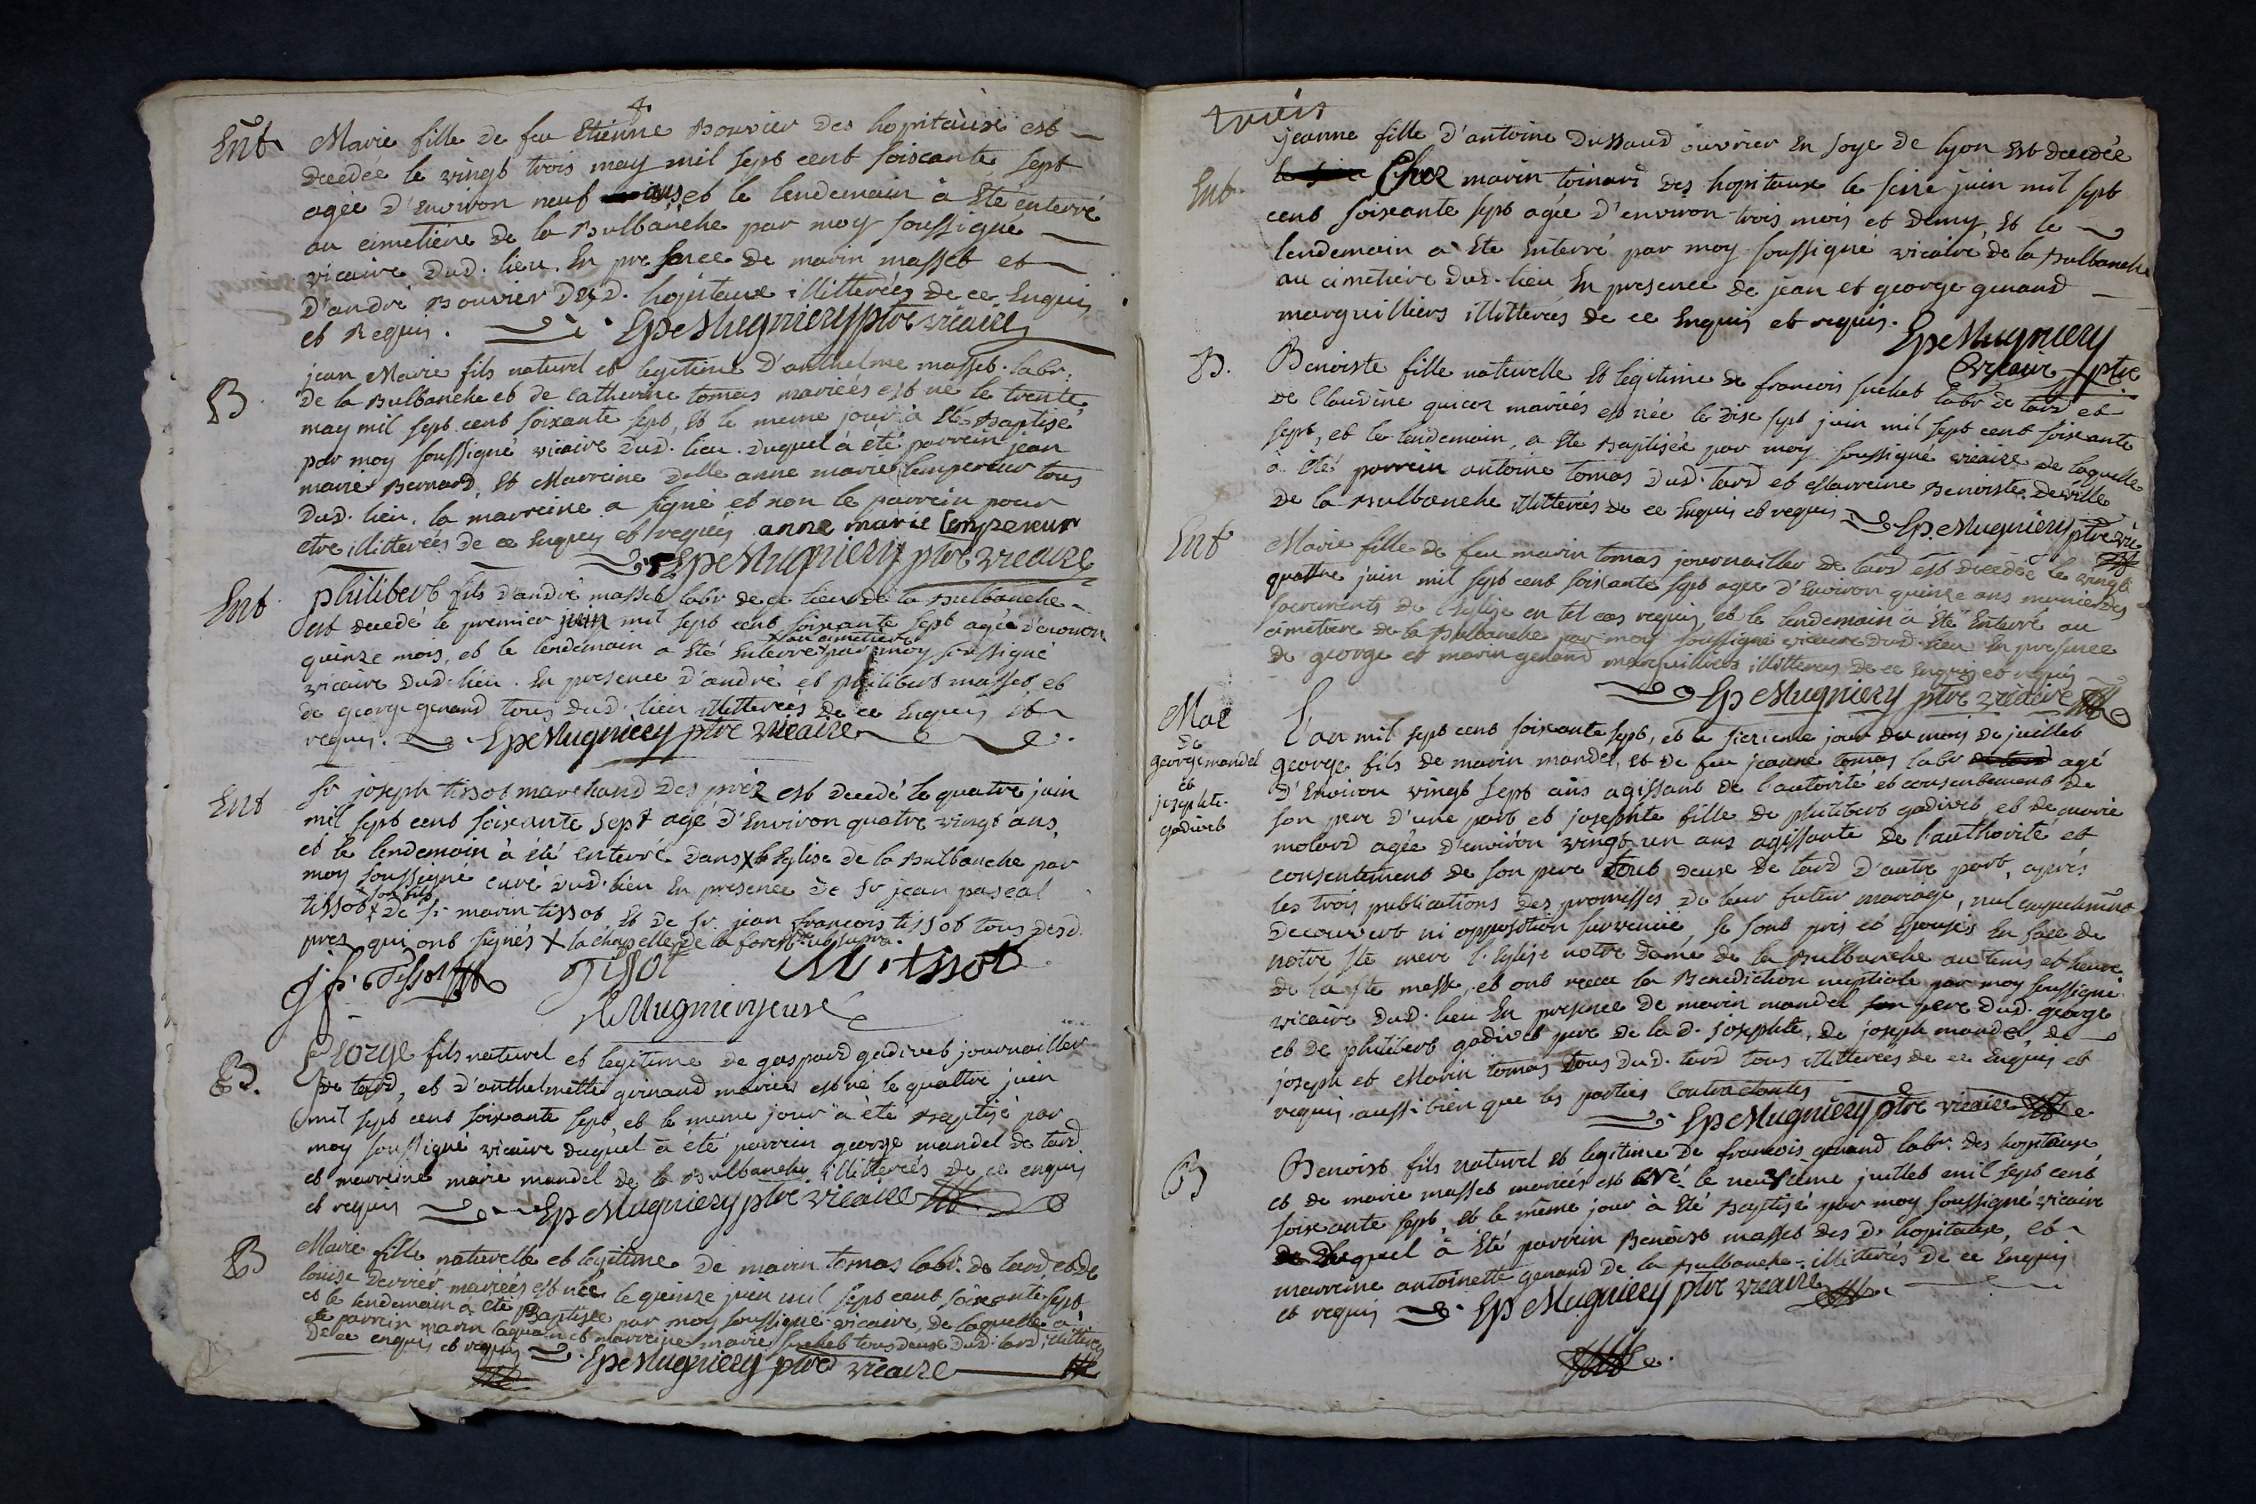 4
Ent Marie fille de feu Etienne Bouvier des hopitaux est
decedée le vingt trois may mil sept cent soixante sept
agée d'Environ neuf ans et le lendemain à Eté enterré
au cimetiére de la Bulbanche par moy soussigné
vicaire dud. lieu. En presence de marin masset et
d'andré Bouvier desd. hopitaux illitterés de ce Enquis
et Requis. Epe Mugniery ptre vicaire
jean Marie fils naturel et legitime d'anthelme masset labr.
B de la Bulbanche et de Catherine tomas mariés est né le trente
may mil sept cent soixante sept, et le meme jour à Eté Baptisé
par moy soussigné vicaire dud. lieu. duquel à été parrein jean
marie Bernard, et Marreine dlle anne marie lempereur tous
dud. lieu. la marreine a signé et non le parrein pour
etre illitterés de ce Enquis et requis anne marie lempereur
Epe Mugniery ptre vicaire
Ent philibert fils d'andré masset labr de ce lieu de la Bulbanche
est decedé le premier juin mil sept cent soixante sept agée d'environ
quinze mois, et le lendemain a Eté Enterré au cimetiere par moy soussigné
vicaire dud. lieu. En presence d'andré et philibert masset et
de george genand tous dud. lieu illitterés de ce Enquis et
requis. Epe Mugniery ptre vicaire
Ent Sr joseph tissot marchand des préz est decedé le quatre juin
mil sept cent soixante sept agé d'Environ quatre vingt ans,
et le lendemain à été enterré dans x l'Eglise de la Bulbanche par
moy soussigné curé dud. lieu En presence de Sr jean pascal
tissot son fils de Sr marin tissot et de Sr jean francois tissot tous desd.
prez qui ont signés x la chapelle de la forest ut supra.
j f. Tissot Tissot M. tissot
Mugnier curé
B. George fils naturel et legitime de gaspard godivet journaillier
de tard, et d'anthelmette guinand mariés est né le quattre juin
mil sept cent soixante sept et le meme jour à été Baptisé par
moy soussigné vicaire duquel à été parrein george mandel de tard
et marreine marie mandel de la Bulbanche illitterés de ce enquis
et requis Epe Mugniery ptre vicaire
B Marie fille naturelle et legitime de marin tomas labr. de tard et de
louise derrier mariées est née le quinze juin mil sept cent soixante sept
et le lendemain a eté Baptisée par moy soussigné vicaire, de laquelle a
été parrein marin laquain et marreine marie suchet tous deux dud. tard, illitterés
de ce enquis et requis Epe Mugniery ptre vicaire
trois
jeanne fille d'antoine dussaud ouvrier En soye de lyon est decedée
Ent. Chez marin toinard des hopitaux le seize juin mil sept
cent soixante sept agée d'environ trois mois et demy, et le
lendemain a Eté Enterré par moy soussigné vicaire de la Bulbanche
au cimetiére dud. lieu En presence de jean et george genand
marguilliers illitteres de ce Enquis et requis. Epe Mugniery
vicaire ptre
B. Benoiste fille naturelle et legitime de francois suchet labr de tard et
de Claudine guicoz mariées est née le dix sept juin mil sept cent soixante
sept, et le lendemain, a Eté Baptisée par moy soussigné vicaire de laquelle
à Eté parrein antoine tomas dud. tard et Marreine Benoiste deville
de la Bulbanche illitterés de ce Enquis et requis Ep. Mugniery ptre vic
Ent Marie fille de feu marin tomas journaillier de tard est decedée le vingt
quattre juin mil sept cent soixante sept agée d'Environ quinze ans muniée des
sacrements de l'Eglise en tel cas requis, et le lendemain à Eté Enterré au
cimetiere de la Bulbanche par moy soussigné vicaire dud. lieu En presence
de george et marin genand marguilliers illitteres de ce Enquis et requis
Ep Mugniery ptre vicaire
Mar
de
george mandel
et
josephte
godivet
L'an mil sept cent soixante sept, et le sixieme jour du mois de juillet
george fils de marin mandel, et de feu jeanne tomas labr de tard agé
d'Environ vingt sept ans agissant de l'autorité et consentement de
son pere d'une part et josephte fille de philibert godivet et de marie
molard agée d'environ vingt un ans agissante de l'authorité et
consentement de son pere tout deux de tard d'autre part, aprés
les trois publications des promesses de leur futur mariage, nul empechement
decouvert ni opposition survenüe, se sont pris et Epousés En face de
notre Ste mere l'Eglise notre dame de la Bulbanche au tems et heure
de la Ste messe, et ont recu la Benediction nuptiale par moy soussigné
vicaire dud. lieu En presence de marin mandel son pere dud. george
et de philibert godivet pere de la d. josephte, de joseph mandel, de
joseph et Marin tomas tous dud. tard tous illitterees de ce Enquis et
requis aussi bien que les parties Contractantes
Epe Mugniery ptre vicaire
B Benoist fils naturel et legitime de francois genand labr. des hopitaux
et de marie masset mariés est né le neuvieme juillet mil sept cent
soixante sept, et le même jour à Eté Baptisé par moy soussigné vicaire
duquel à Eté parrein Benoist masset des d. hopitaux, et
marreine antoinette genand de la Bulbanche illitterés de ce Enquis
et requis Ep Mugniery ptre vicaire